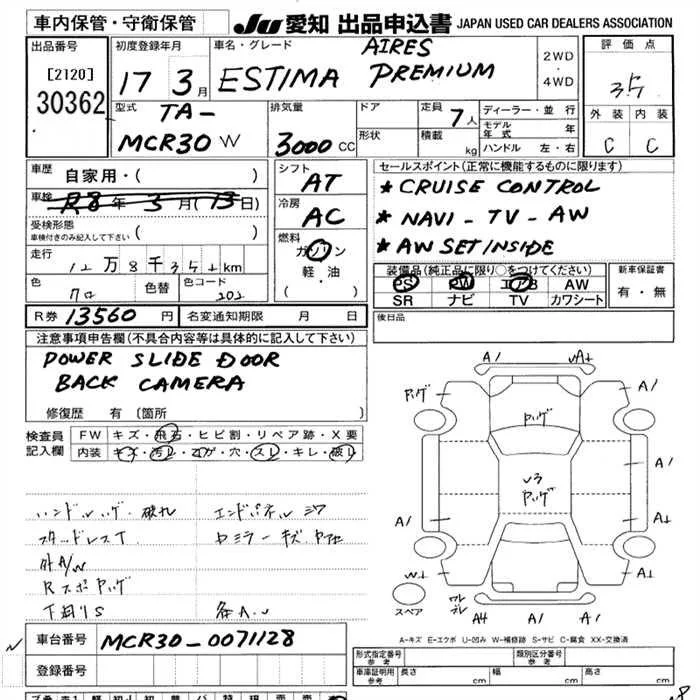 車内保管・守衛保管
JU 愛知 出品申込書 JAPAN USED CAR DEALERS ASSOCIATION
出品番号
[2120]
30362
初度登録年月
17 3月
車名・グレード
ESTIMA AIRES PREMIUM
2WD
・
4WD
評価点
3.5
外装 内装
C C
型式
TA-
MCR30W
排気量
3000CC
ドア
形状
定員 7人
積載 kg
ディーラー・並行
モデル年式 年
ハンドル 左・右
車歴 自家用・( )
車検 R8年3月(13日)
受検形態
車検付きのみ記入して下さい ( )
走行
12万8千352km
色 クロ 色替 色コード 202
R券 13560円 名変通知期限 月 日
シフト
AT
冷房
AC
燃料
ガソリン
軽・油
( )
セールスポイント(正常に機能するものに限ります)
★CRUISE CONTROL
★NAVI-TV-AW
★AW SET INSIDE
装備品(純正品に限り○をつけてください)
PS PW エアB AW
SR ナビ TV カワシート
新車保証書
有・無
後日品
注意事項申告欄(不具合内容等は具体的に記入して下さい)
POWER SLIDE DOOR
BACK CAMERA
修復歴 有〔箇所 〕
検査員記入欄
FW キズ・飛石・ヒビ割・リペア跡・X要
内装 キズ・汚レ・コゲ・穴・スレ・キレ・破レ
ハンドルハゲ・破れ
スタッドレスT
外A/W
下廻りS
各A.U
A1
A1
A1
A1
A1
A1
A1
A4
スペア
A-キズ E-エクボ U-凹み W-補修跡 S-サビ C-腐食 XX-交換済
車台番号 MCR30-0071128
登録番号
形式指定番号
参考
類別区分番号
参考
車庫証明用
参考
長さ cm 幅 cm 高さ cm